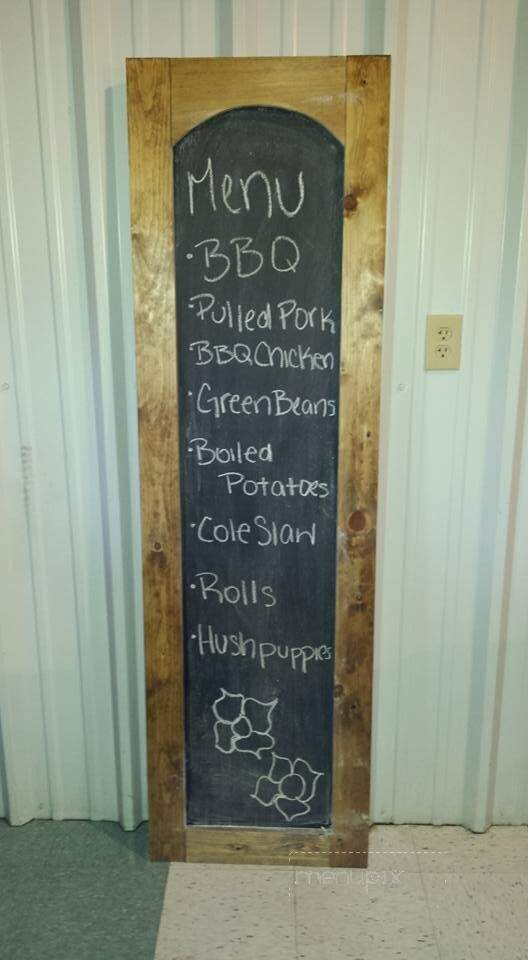 Menu
• BBQ
• Pulled Pork
BBQ Chicken
• Green Beans
• Boiled
Potatoes
• Cole Slaw
• Rolls
• Hushpuppies
menupix